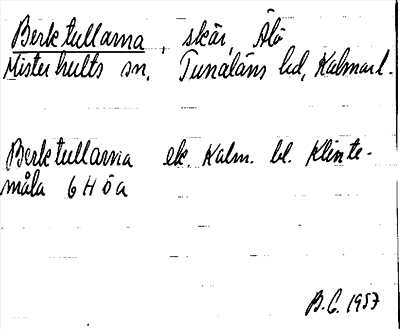 Berktullarna, skär, Älö
Misterhults sn, Tunaläns hd, Kalmar l.
Berktullarna ek. Kalm. bl. Klinte-
måla 6 H ö a
B.G. 1957